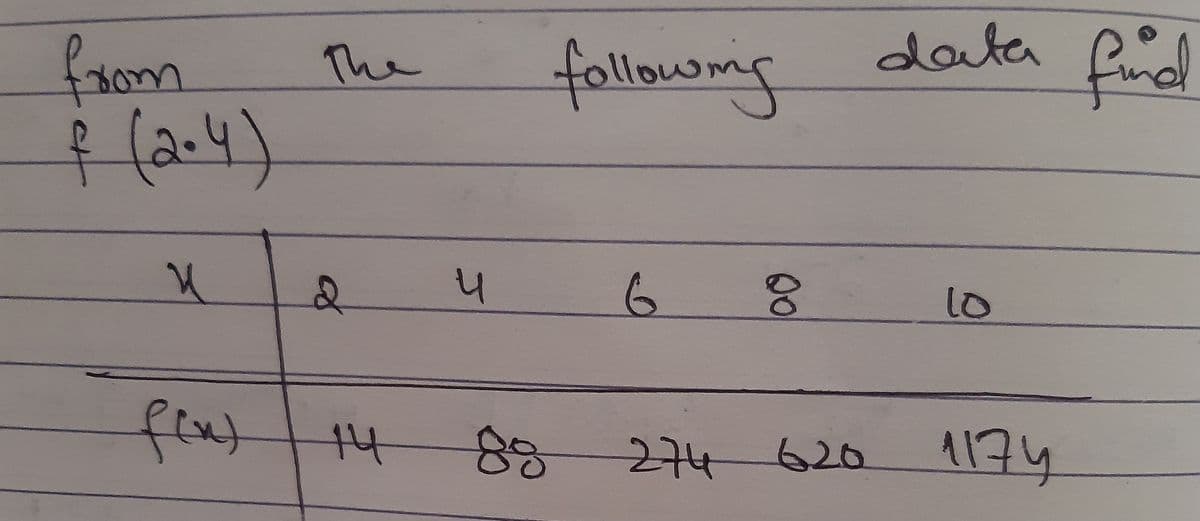 from The following data find
f (2.4)
x 2 4 6 8 10
f(x) 14 88 274 620 1174